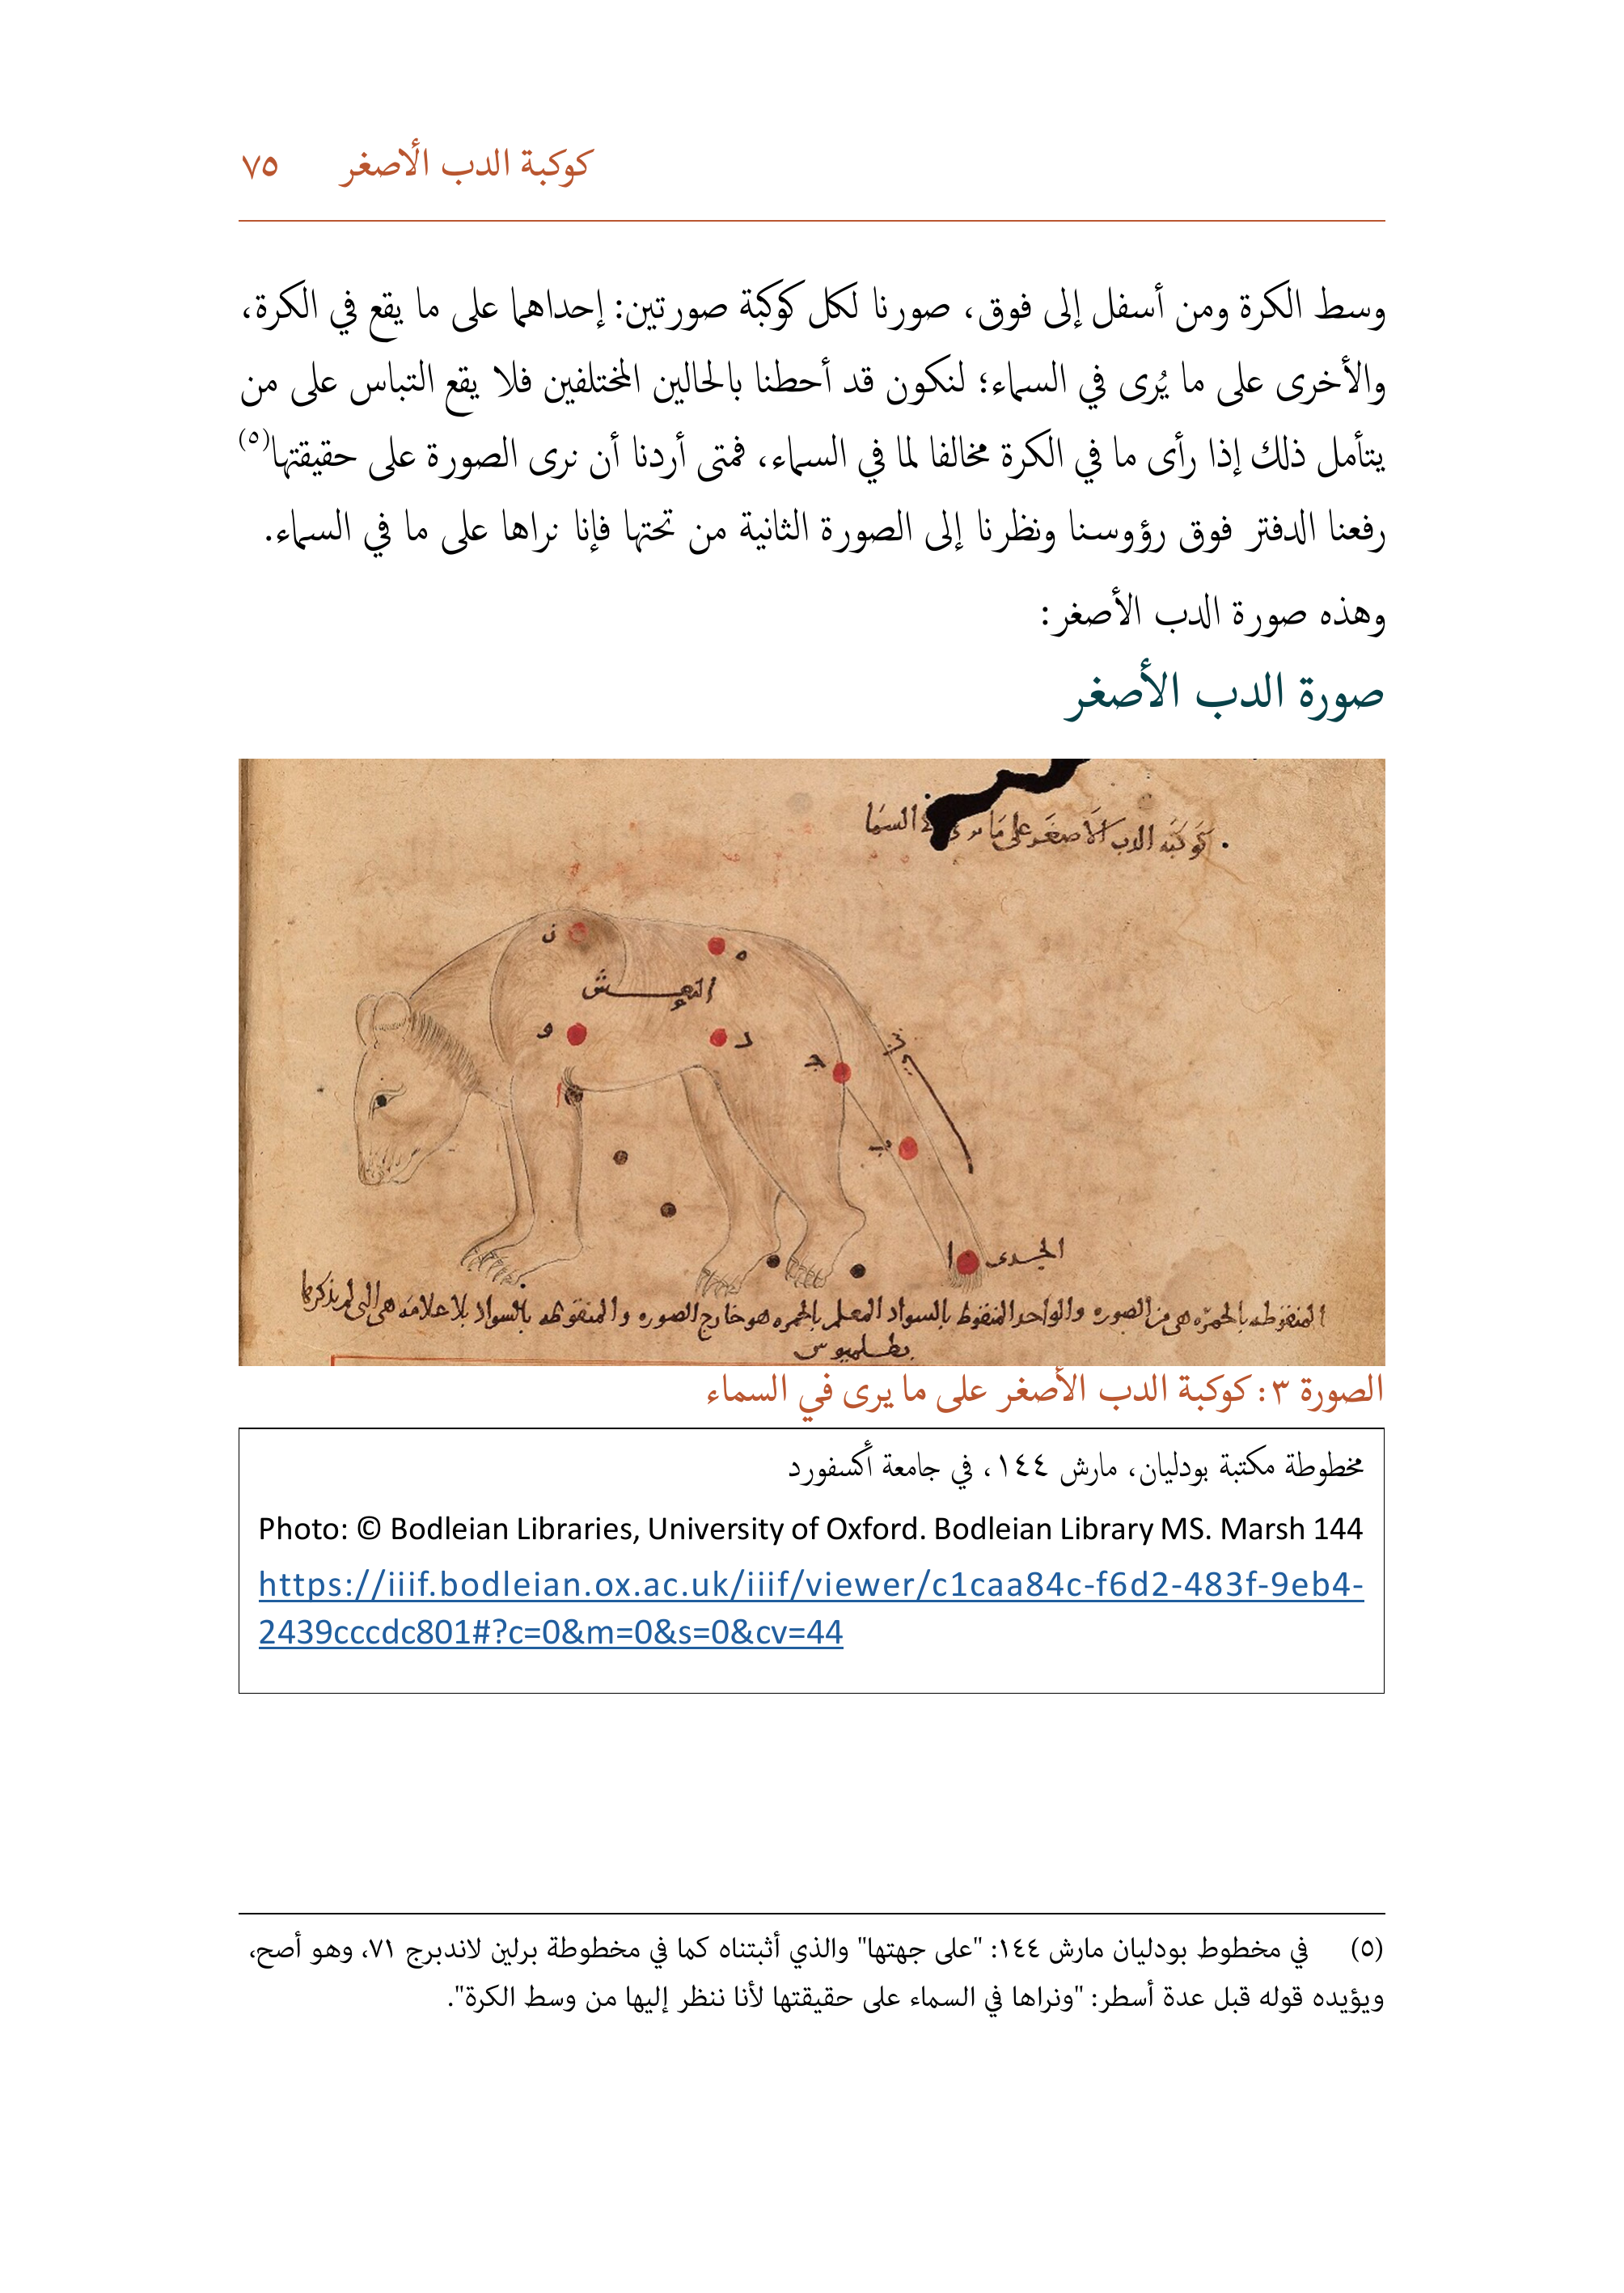 كوكبة الدب الأصغر ٧٥
وسط الكرة ومن أسفل إلى فوق، صورنا لكل كوكبة صورتين: إحداهما على ما يقع في الكرة،
والأخرى على ما يُرى في السماء؛ لنكون قد أحطنا بالحالين المختلفين فلا يقع التباس على من
يتأمل ذلك إذا رأى ما في الكرة مخالفا لما في السماء، فمتى أردنا أن نرى الصورة على حقيقتها(٥)
رفعنا الدفتر فوق رؤوسنا ونظرنا إلى الصورة الثانية من تحتها فإنا نراها على ما في السماء.
وهذه صورة الدب الأصغر:
صورة الدب الأصغر
كَوكَبَه الدب الاَصغَر على مَا السمَا
ن
ه
النعش
و
د
ج
ب
ا
الجدى
المنقوطه بالحمره هى من الصوره والواحد المنقوط بالسواد المعلم بالحمره هو خارج الصوره والمنقوطه بالسواد بلا علامه هى التى لم يذكرها
بطلميوس
الصورة ٣: كوكبة الدب الأصغر على ما يرى في السماء
مخطوطة مكتبة بودليان، مارش ١٤٤، في جامعة أكسفورد
Photo: © Bodleian Libraries, University of Oxford. Bodleian Library MS. Marsh 144
https://iiif.bodleian.ox.ac.uk/iiif/viewer/c1caa84c-f6d2-483f-9eb4-
2439cccdc801#?c=0&m=0&s=0&cv=44
(٥) في مخطوط بودليان مارش ١٤٤: "على جهتها" والذي أثبتناه كما في مخطوطة برلين لاندبرج ٧١، وهو أصح،
ويؤيده قوله قبل عدة أسطر: "ونراها في السماء على حقيقتها لأنا ننظر إليها من وسط الكرة".